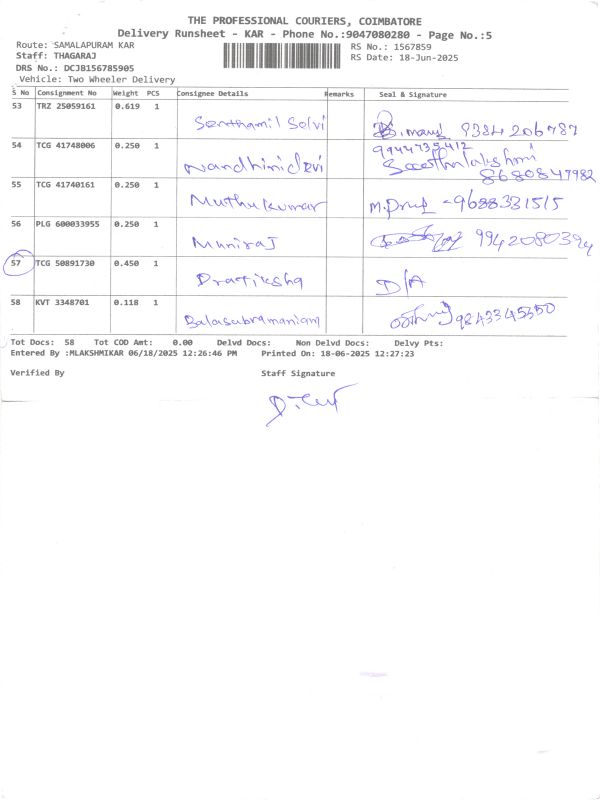 THE PROFESSIONAL COURIERS, COIMBATORE
Delivery Runsheet - KAR - Phone No.:9047080280 - Page No.:5
Route: SAMALAPURAM KAR RS No.: 1567859
Staff: THAGARAJ RS Date: 18-Jun-2025
DRS No.: DCJB156785905
Vehicle: Two Wheeler Delivery
S No Consignment No Weight PCS Consignee Details Remarks Seal & Signature
53 TRZ 25059161 0.619 1
Senthamil Selvi 9384206787
54 TCG 41748006 0.250 1 9944735412
Nandhinidevi 8680847982
55 TCG 41740161 0.250 1
Muthukumar 9688331515
56 PLG 600033955 0.250 1
Muniraj
57 TCG 50891730 0.450 1
Pratiksha D/A
58 KVT 3348701 0.118 1
Balasubramaniam 9843345350
Tot Docs: 58 Tot COD Amt: 0.00 Delvd Docs: Non Delvd Docs: Delvy Pts:
Entered By :MLAKSHMIKAR 06/18/2025 12:26:46 PM Printed On: 18-06-2025 12:27:23
Verified By Staff Signature